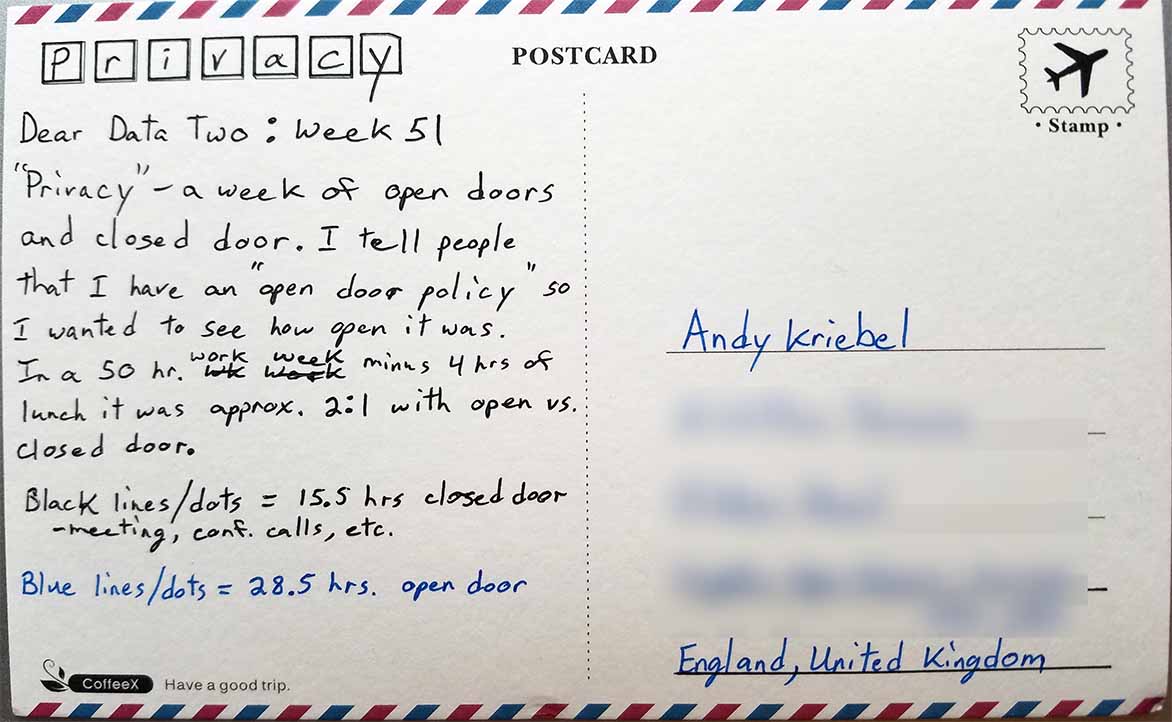 Privacy
POSTCARD
• Stamp •
Dear Data Two: Week 51
"Privacy" - a week of open doors
and closed door. I tell people
that I have an "open door policy" so
I wanted to see how open it was.
In a 50 hr. work week minus 4 hrs of
lunch it was approx. 2:1 with open vs.
closed door.
Black lines/dots = 15.5 hrs closed door
-meeting, conf. calls, etc.
Blue lines/dots = 28.5 hrs. open door
CoffeeX Have a good trip.
Andy Kriebel
England, United Kingdom